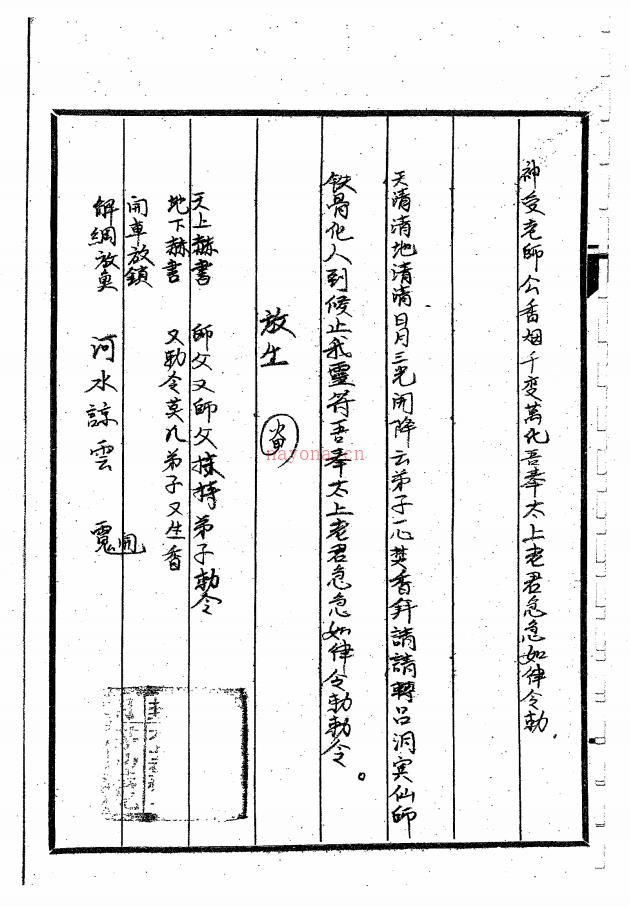 神变老師公香烟千变萬化吾奉太上老君急急如律令勅.
天清清地清清日月三光開降云弟子一心焚香拜請請轉吕洞宾仙師
铁骨化人到候止我靈符吾奉太上老君急急如律令勅勅令。
放生
天上赫書 師父又師父扶持弟子勅令
地下赫書 又勅令莫凡弟子又生香
開車放鎖
解網放魚 河水諒雲 開
nayona.cn